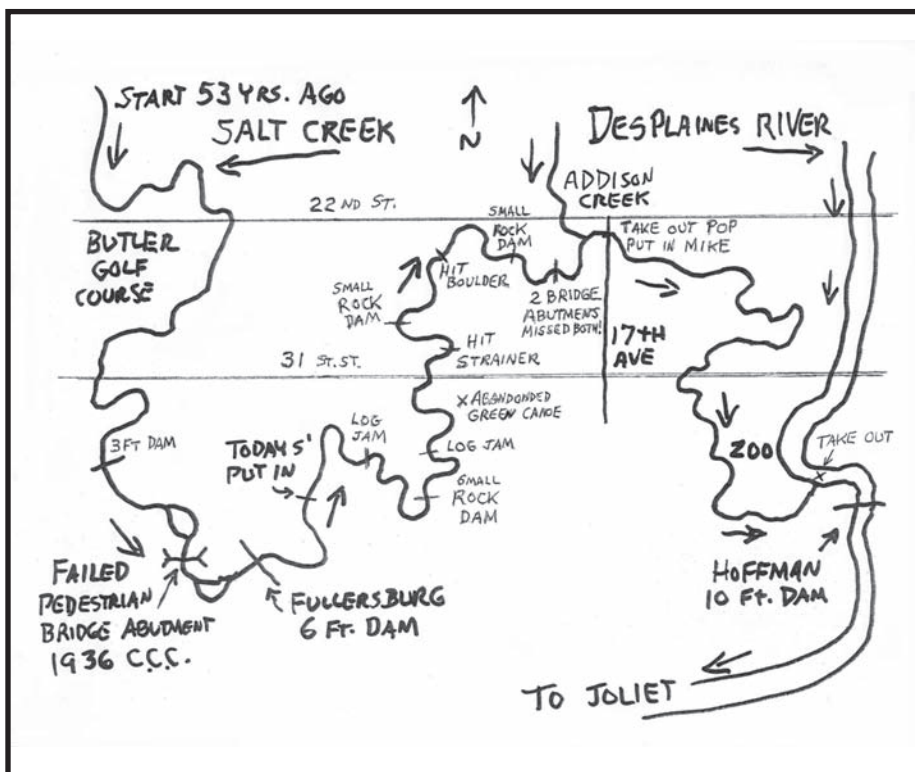 START 53 YRS. AGO
SALT CREEK
N
DESPLAINES RIVER
ADDISON
CREEK
22ND ST.
BUTLER
GOLF
COURSE
SMALL
ROCK
DAM
TAKE OUT POP
PUT IN MIKE
HIT
BOULDER
SMALL
ROCK
DAM
2 BRIDGE
ABUTMENTS
MISSED BOTH!
HIT
STRAINER
17TH
AVE
31 ST. ST.
X ABANDONDED
GREEN CANOE
3 FT DAM
LOG
JAM
TODAYS'
PUT IN
LOG JAM
ZOO
TAKE OUT
X
SMALL
ROCK
DAM
FAILED
PEDESTRIAN
BRIDGE ABUTMENT
1936 C.C.C.
FULLERSBURG
6 FT. DAM
HOFFMAN
10 FT. DAM
TO JOLIET